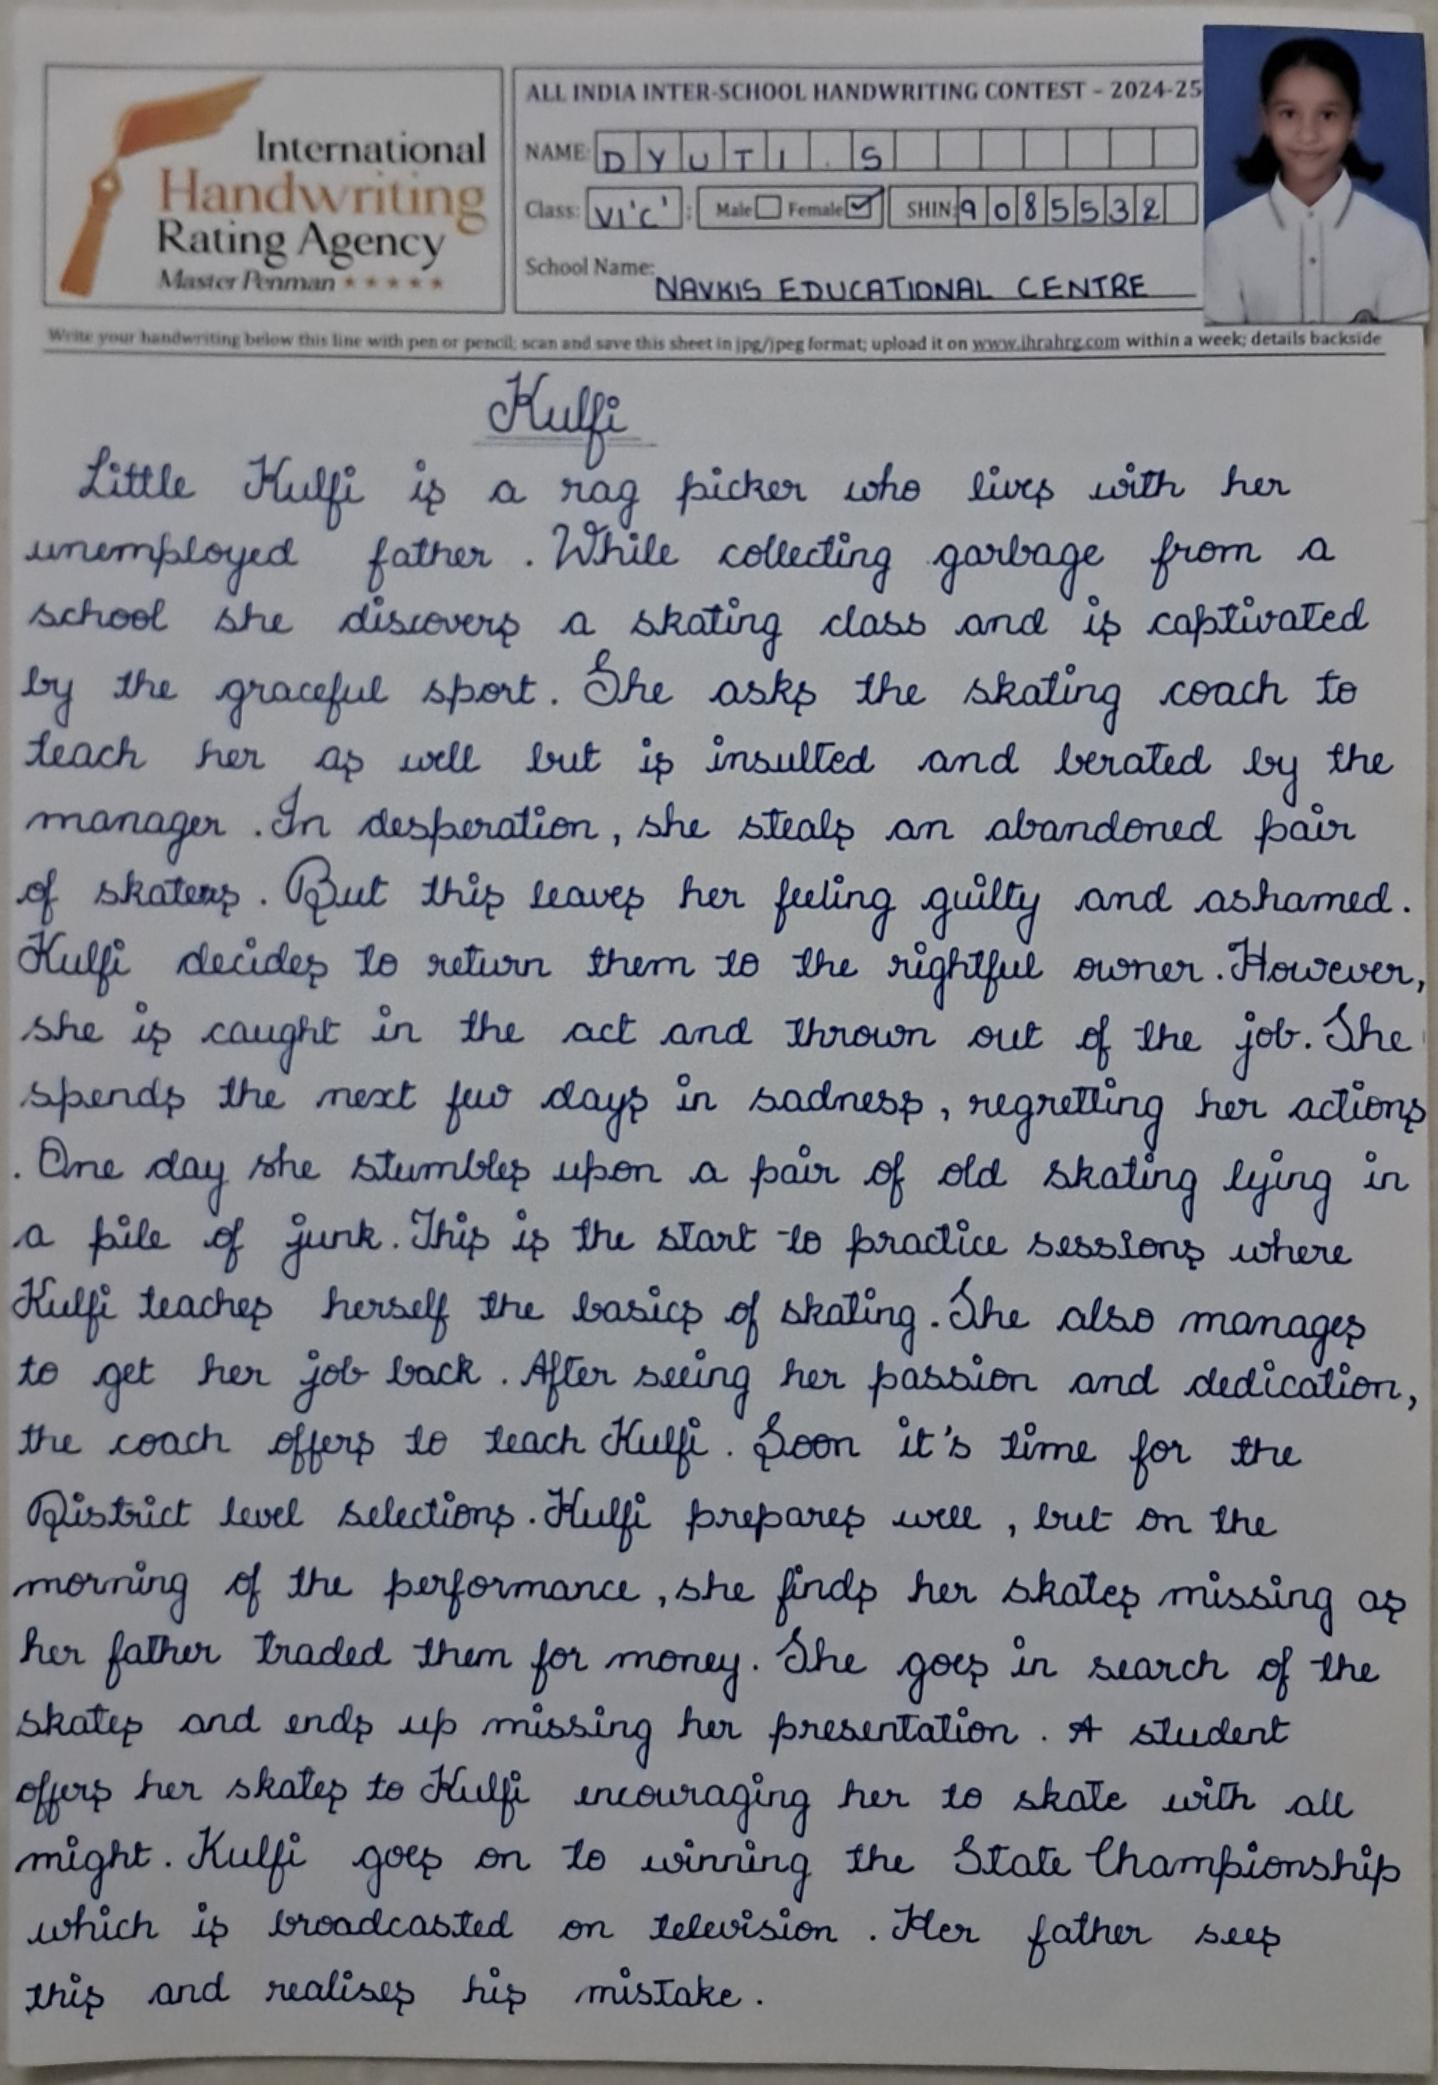 International
Handwriting
Rating Agency
Master Penman
ALL INDIA INTER-SCHOOL HANDWRITING CONTEST - 2024-25
NAME: DYUTI.S
Class: VI'C' : Male Female SHIN: 9085532
School Name: NAVKIS EDUCATIONAL CENTRE
Write your handwriting below this line with pen or pencil; scan and save this sheet in jpg/jpeg format; upload it on www.ihrahrg.com within a week; details backside
Kulfi
Little Kulfi is a rag picker who lives with her
unemployed father. While collecting garbage from a
school she discovers a skating class and is captivated
by the graceful sport. She asks the skating coach to
teach her as well but is insulted and berated by the
manager. In desperation, she steals an abandoned pair
of skaters. But this leaves her feeling guilty and ashamed.
Kulfi decides to return them to the rightful owner. However,
she is caught in the act and thrown out of the job. She
spends the next few days in sadness, regretting her actions
. One day she stumbles upon a pair of old skating lying in
a pile of junk. This is the start to practice sessions where
Kulfi teaches herself the basics of skating. She also manages
to get her job back. After seeing her passion and dedication,
the coach offers to teach Kulfi. Soon it's time for the
District level selections. Kulfi prepares well, but on the
morning of the performance, she finds her skates missing as
her father traded them for money. She goes in search of the
skates and ends up missing her presentation. A student
offers her skates to Kulfi encouraging her to skate with all
might. Kulfi goes on to winning the State Championship
which is broadcasted on television. Her father sees
this and realises his mistake.